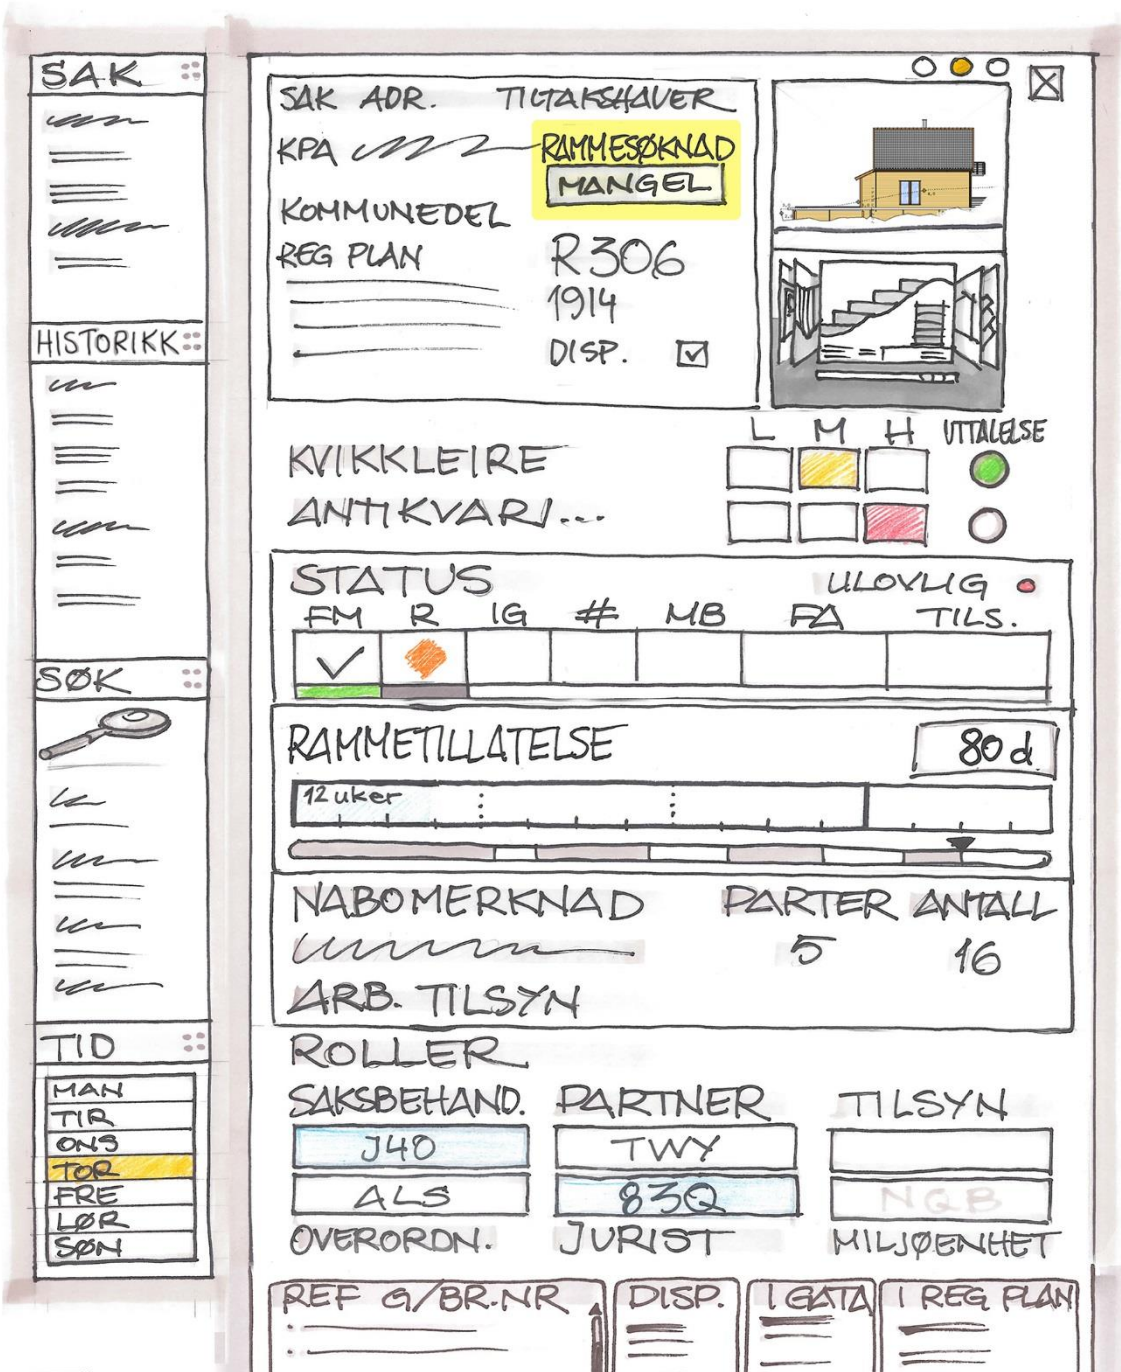 SAK
HISTORIKK
SØK
TID
MAN
TIR
ONS
TOR
FRE
LØR
SØN
SAK ADR. TILTAKSHAVER
KPA RAMMESØKNAD
MANGEL
KOMMUNEDEL
REG PLAN R306
1914
DISP.
L M H UTTALELSE
KVIKKLEIRE
ANTIKVARI...
STATUS ULOVLIG
FM R IG # MB FA TILS.
RAMMETILLATELSE 80 d.
12 uker
NABOMERKNAD PARTER ANTALL
5 16
ARB. TILSYN
ROLLER
SAKSBEHAND. PARTNER TILSYN
J40 TWY
ALS 83Q NQB
OVERORDN. JURIST MILJØENHET
REF G/BR.NR DISP. I GATA I REG PLAN